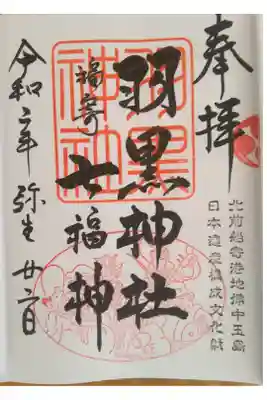 奉拝
北前船寄港地備中玉島
日本遺産構成文化財
羽黒神社
羽黒神社
福寄
七福神
令和二年 弥生 廿二日